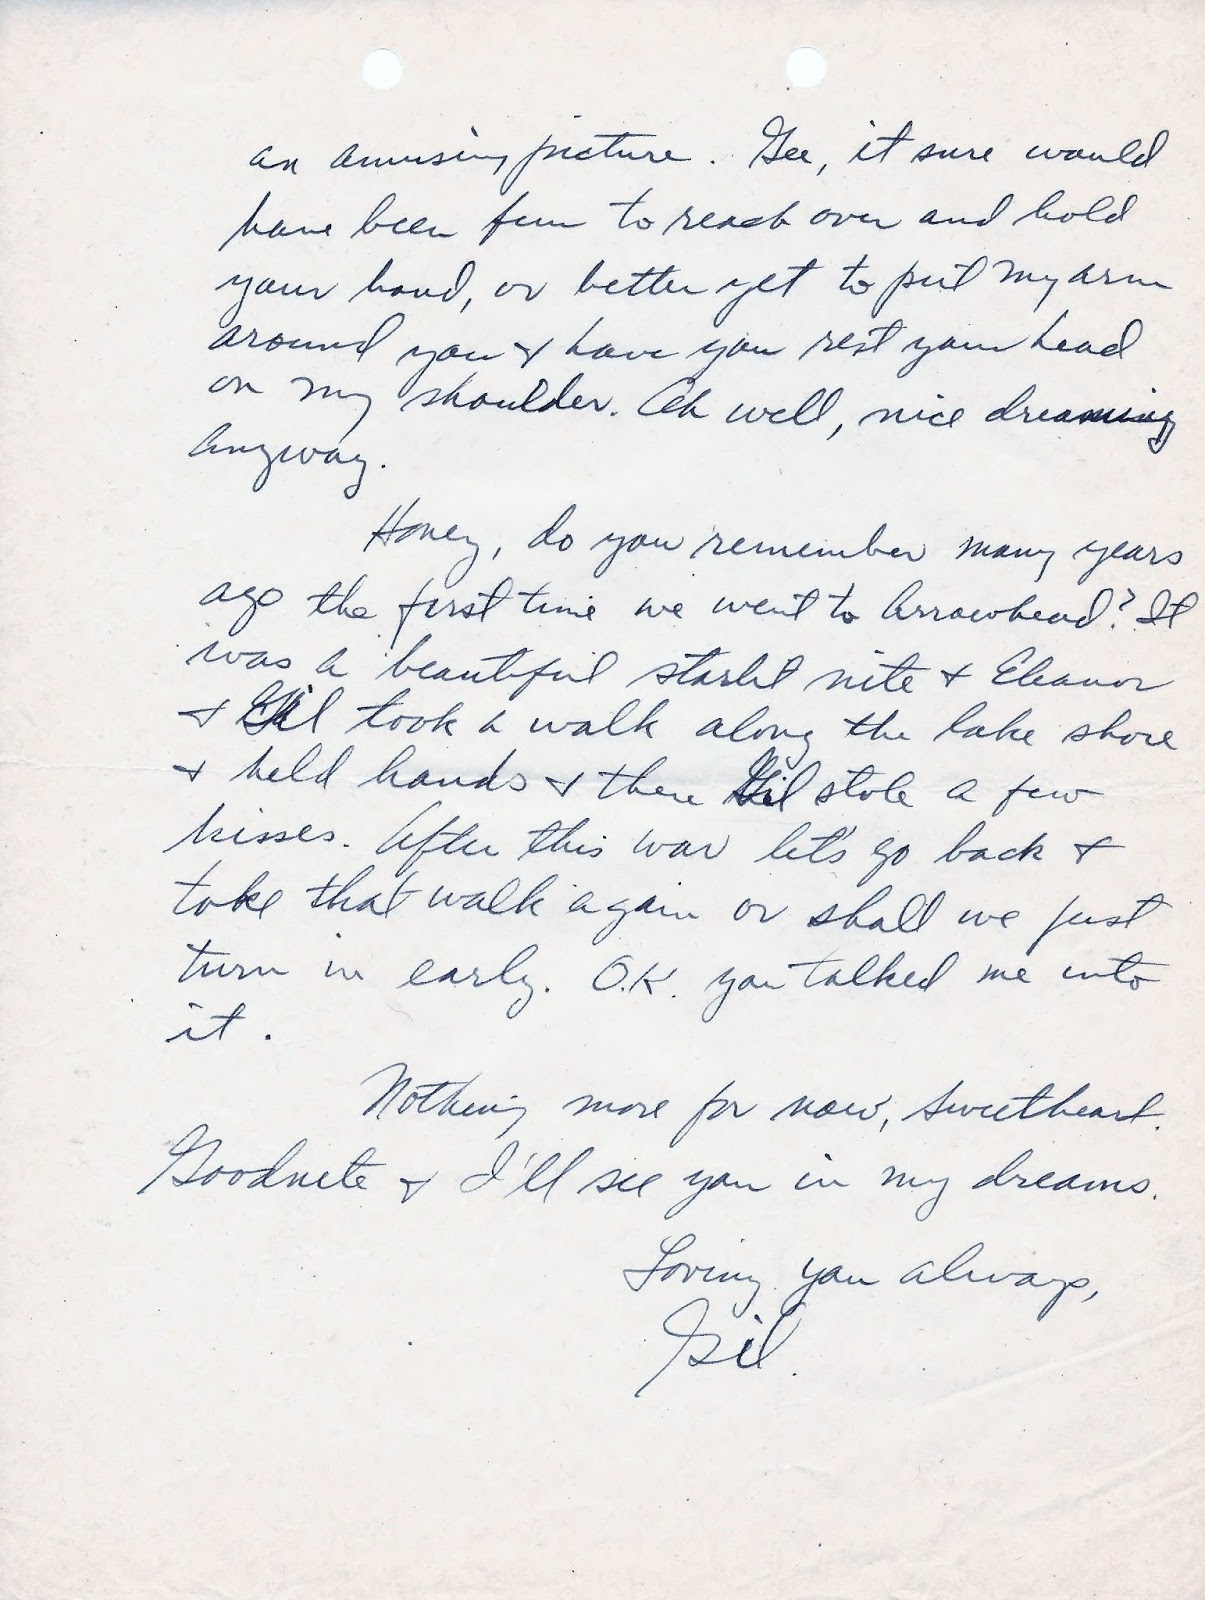 an amusing picture. Gee, it sure would
have been fun to reach over and hold
your hand, or better yet to put my arm
around you & have you rest your head
on my shoulder. Ah well, nice dreaming
anyway.
Honey, do you remember many years
ago the first time we went to Arrowhead? It
was a beautiful starlit nite & Eleanor
& Gil took a walk along the lake shore
& held hands & there Gil stole a few
kisses. After this war let's go back &
take that walk again or shall we just
turn in early. O.K. you talked me into
it.
Nothing more for now, sweetheart.
Goodnite & I'll see you in my dreams.
Loving you always,
Gil.